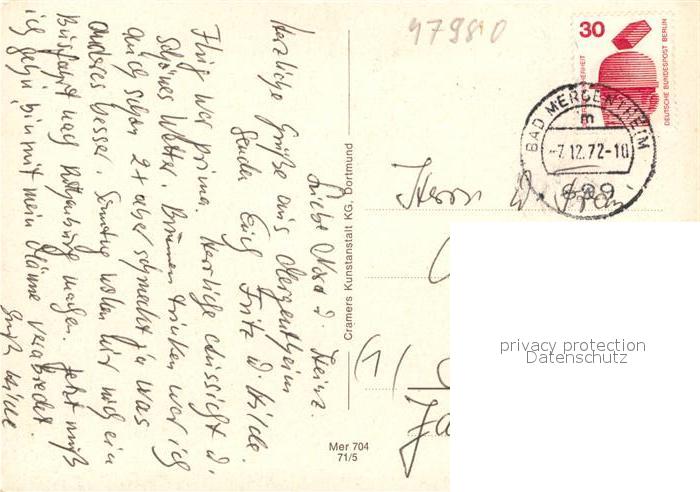 Liebe Nora u. Heinz.
Herzliche Grüße aus Mergentheim
senden Euch Fritz u. Hilde.
Flug war prima. Herrliche Aussicht u.
schönes Wetter. Brunnen trinken war ich
auch schon 2x aber schmeckt ja was
anderes besser. Sonntag wollen wir noch ein
Busfahrt nach Rothenburg machen. Jetzt muß
ich gehn bin mit mein Männe verabredet.
Gruß Hilde
Cramers Kunstanstalt KG, Dortmund
Mer 704
71/5
47980
30
DEUTSCHE BUNDESPOST BERLIN
BAD MERGENTHEIM
m
-7.12.72-10
699
Herrn u. Frau
(1/
privacy protection
Datenschutz